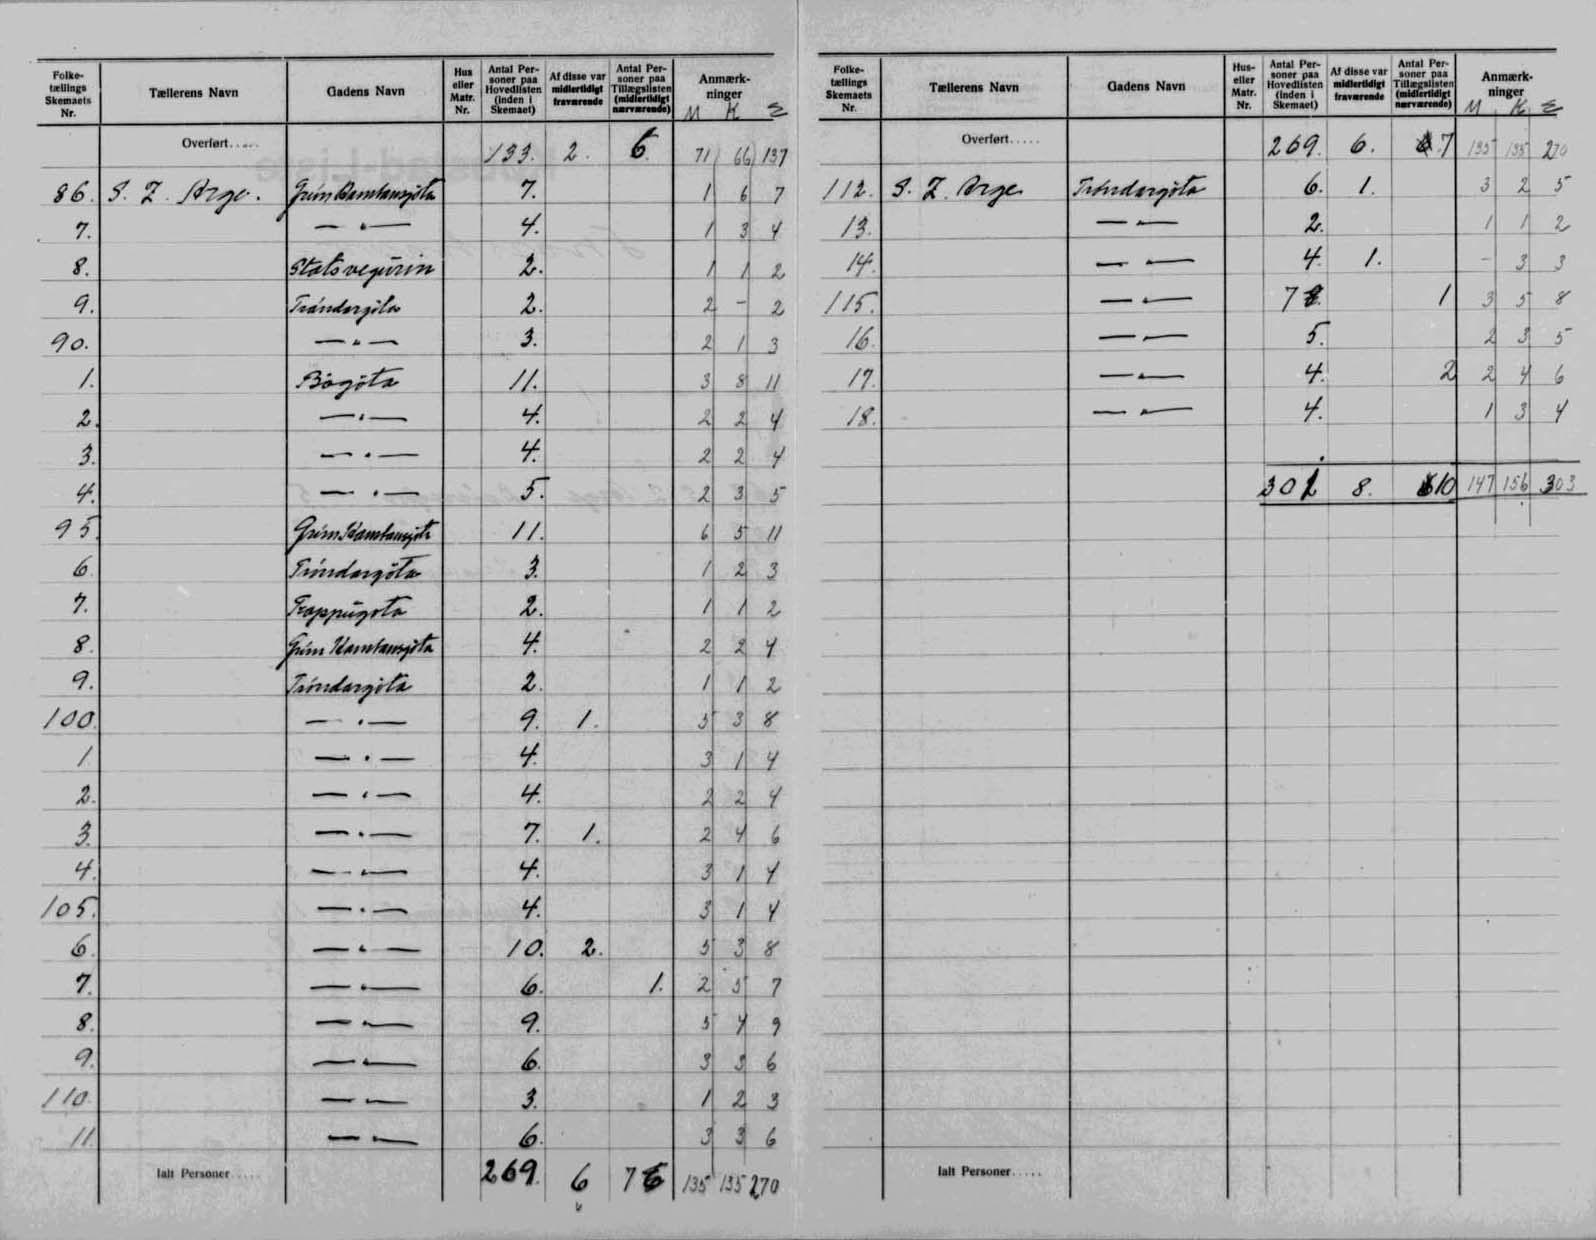 Folke-tællings Skemaets Nr. Tællerens Navn Gadens Navn Hus eller Matr. Nr. Antal Personer paa Hovedlisten (inden i Skemaet) Af disse var midlertidigt fraværende Antal Personer paa Tillægslisten (midlertidigt nærværende) Anmærkninger M K Σ
Overført..... 133. 2. 6. 71 66 137
86. S. Z. Arge. Grim Kambansgøta 7. 1 6 7
7. — " — 4. 1 3 4
8. Statsvegurin 2. 1 1 2
9. Tróndargøta 2. 2 - 2
90. — " — 3. 2 1 3
1. Bøgøta 11. 3 8 11
2. — " — 4. 2 2 4
3. — " — 4. 2 2 4
4. — " — 5. 2 3 5
95. Grim Kambansgøta 11. 6 5 11
6. Tróndargøta 3. 1 2 3
7. Trappugøta 2. 1 1 2
8. Grim Kambansgøta 4. 2 2 4
9. Tróndargøta 2. 1 1 2
100. — " — 9. 1. 5 3 8
1 — " — 4. 3 1 4
2. — " — 4. 2 2 4
3. — " — 7. 1. 2 4 6
4. — " — 4. 3 1 4
105. — " — 4. 3 1 4
6. — " — 10. 2. 5 3 8
7. — " — 6. 1. 2 5 7
8. — " — 9. 5 4 9
9. — " — 6. 3 3 6
110. — " — 3. 1 2 3
11. — " — 6. 3 3 6
Ialt Personer..... 269. 6 7 135 135 270
Folke-tællings Skemaets Nr. Tællerens Navn Gadens Navn Hus- eller Matr. Nr. Antal Personer paa Hovedlisten (inden i Skemaet) Af disse var midlertidigt fraværende Antal Personer paa Tillægslisten (midlertidigt nærværende) Anmærkninger M K Σ
Overført..... 269. 6. 7 135 135 270
112. S. Z. Arge. Tróndargøta 6. 1. 3 2 5
13. — " — 2. 1 1 2
14. — " — 4. 1. - 3 3
115. — " — 7 1 3 5 8
16. — " — 5. 2 3 5
17. — " — 4. 2 2 4 6
18. — " — 4. 1 3 4
301 8. 10 147 156 303
Ialt Personer.....